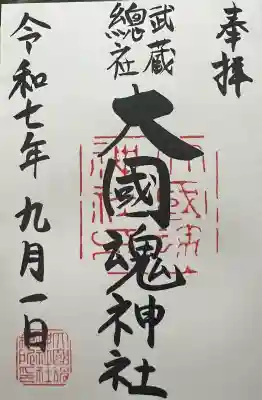 奉拝
武蔵
總社
大國魂神社
令和七年 九月一日